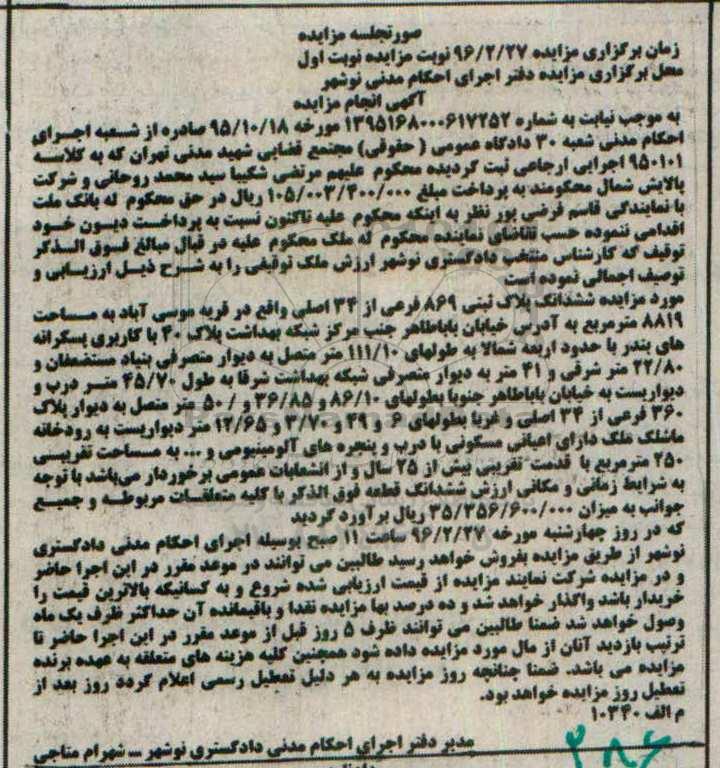 صورتجلسه مزایده
زمان برگزاری مزایده ۹۶/۲/۲۷ نوبت مزایده نوبت اول
محل برگزاری مزایده دفتر اجرای احکام مدنی نوشهر
آگهی انجام مزایده
به موجب نیابت به شماره ۱۳۹۵۱۶۸۰۰۰۶۱۷۲۵۲ مورخه ۹۵/۱۰/۱۸ صادره از شعبه اجرای
احکام مدنی شعبه ۳۰ دادگاه عمومی ( حقوقی) مجتمع قضایی شهید مدنی تهران که به کلاسه
۹۵۰۱۰۱ اجرایی ارجاعی ثبت گردیده محکوم علیهم مرتضی شکیبا سید محمد روحانی و شرکت
پالایش شمال محکومند به پرداخت مبلغ ۱۰۵/۰۰۳/۴۰۰/۰۰۰ ریال در حق محکوم له بانک ملت
با نمایندگی قاسم فرضی پور نظر به اینکه محکوم علیه تاکنون نسبت به پرداخت دیون خود
اقدامی ننموده حسب تقاضای نماینده محکوم له ملک محکوم علیه در قبال مبالغ فوق الذکر
توقیف که کارشناس منتخب دادگستری نوشهر ارزش ملک توقیفی را به شرح ذیل ارزیابی و
توصیف اجمالی نموده است
مورد مزایده ششدانگ پلاک ثبتی ۸۶۹ فرعی از ۳۴ اصلی واقع در قریه موسی آباد به مساحت
۸۸۱۹ مترمربع به آدرس خیابان باباطاهر جنب مرکز شبکه بهداشت پلاک ۴۰ با کاربری پسکرانه
های بندر با حدود اربعه شمالا به طولهای ۱۱۱/۱۰ متر متصل به دیوار متصرفی بنیاد مستضعفان و
۲۲/۸۰ متر شرقی و ۴۱ متر به دیوار متصرفی شبکه بهداشت شرقا به طول ۴۵/۷۰ متر درب و
دیواریست به خیابان باباطاهر جنوبا بطولهای ۸۶/۱۰ و ۳۶/۸۵ و ۵۰/ متر متصل به دیوار پلاک
۳۶۰ فرعی از ۳۴ اصلی و غربا بطولهای ۶ و ۴۹ و ۳/۷۰ و ۱۲/۶۵ متر دیواریست به رودخانه
ماشلک ملک دارای اعیانی مسکونی با درب و پنجره های آلومینیومی و ... به مساحت تقریبی
۲۵۰ مترمربع با قدمت تقریبی بیش از ۲۵ سال و از انشعابات عمومی برخوردار می‌باشد با توجه
به شرایط زمانی و مکانی ارزش ششدانگ قطعه فوق الذکر با کلیه متعلقات مربوطه و جمیع
جوانب به میزان ۳۵/۳۵۶/۶۰۰/۰۰۰ ریال برآورد گردید
که در روز چهارشنبه مورخه ۹۶/۲/۲۷ ساعت ۱۱ صبح بوسیله اجرای احکام مدنی دادگستری
نوشهر از طریق مزایده بفروش خواهد رسید طالبین می توانند در موعد مقرر در این اجرا حاضر
و در مزایده شرکت نمایند مزایده از قیمت ارزیابی شده شروع و به کسانیکه بالاترین قیمت را
خریدار باشد واگذار خواهد شد و ده درصد بها مزایده نقدا و باقیمانده آن حداکثر ظرف یک ماه
وصول خواهد شد ضمنا طالبین می توانند ظرف ۵ روز قبل از موعد مقرر در این اجرا حاضر تا
ترتیب بازدید آنان از مال مورد مزایده داده شود همچنین کلیه هزینه های متعلقه به عهده برنده
مزایده می باشد. ضمنا چنانچه روز مزایده به هر دلیل تعطیل رسمی اعلام گردد روز بعد از
تعطیل روز مزایده خواهد بود.
م الف ۱۰۳۴۰
مدیر دفتر اجرای احکام مدنی دادگستری نوشهر ــ شهرام متاجی
۳۸۶